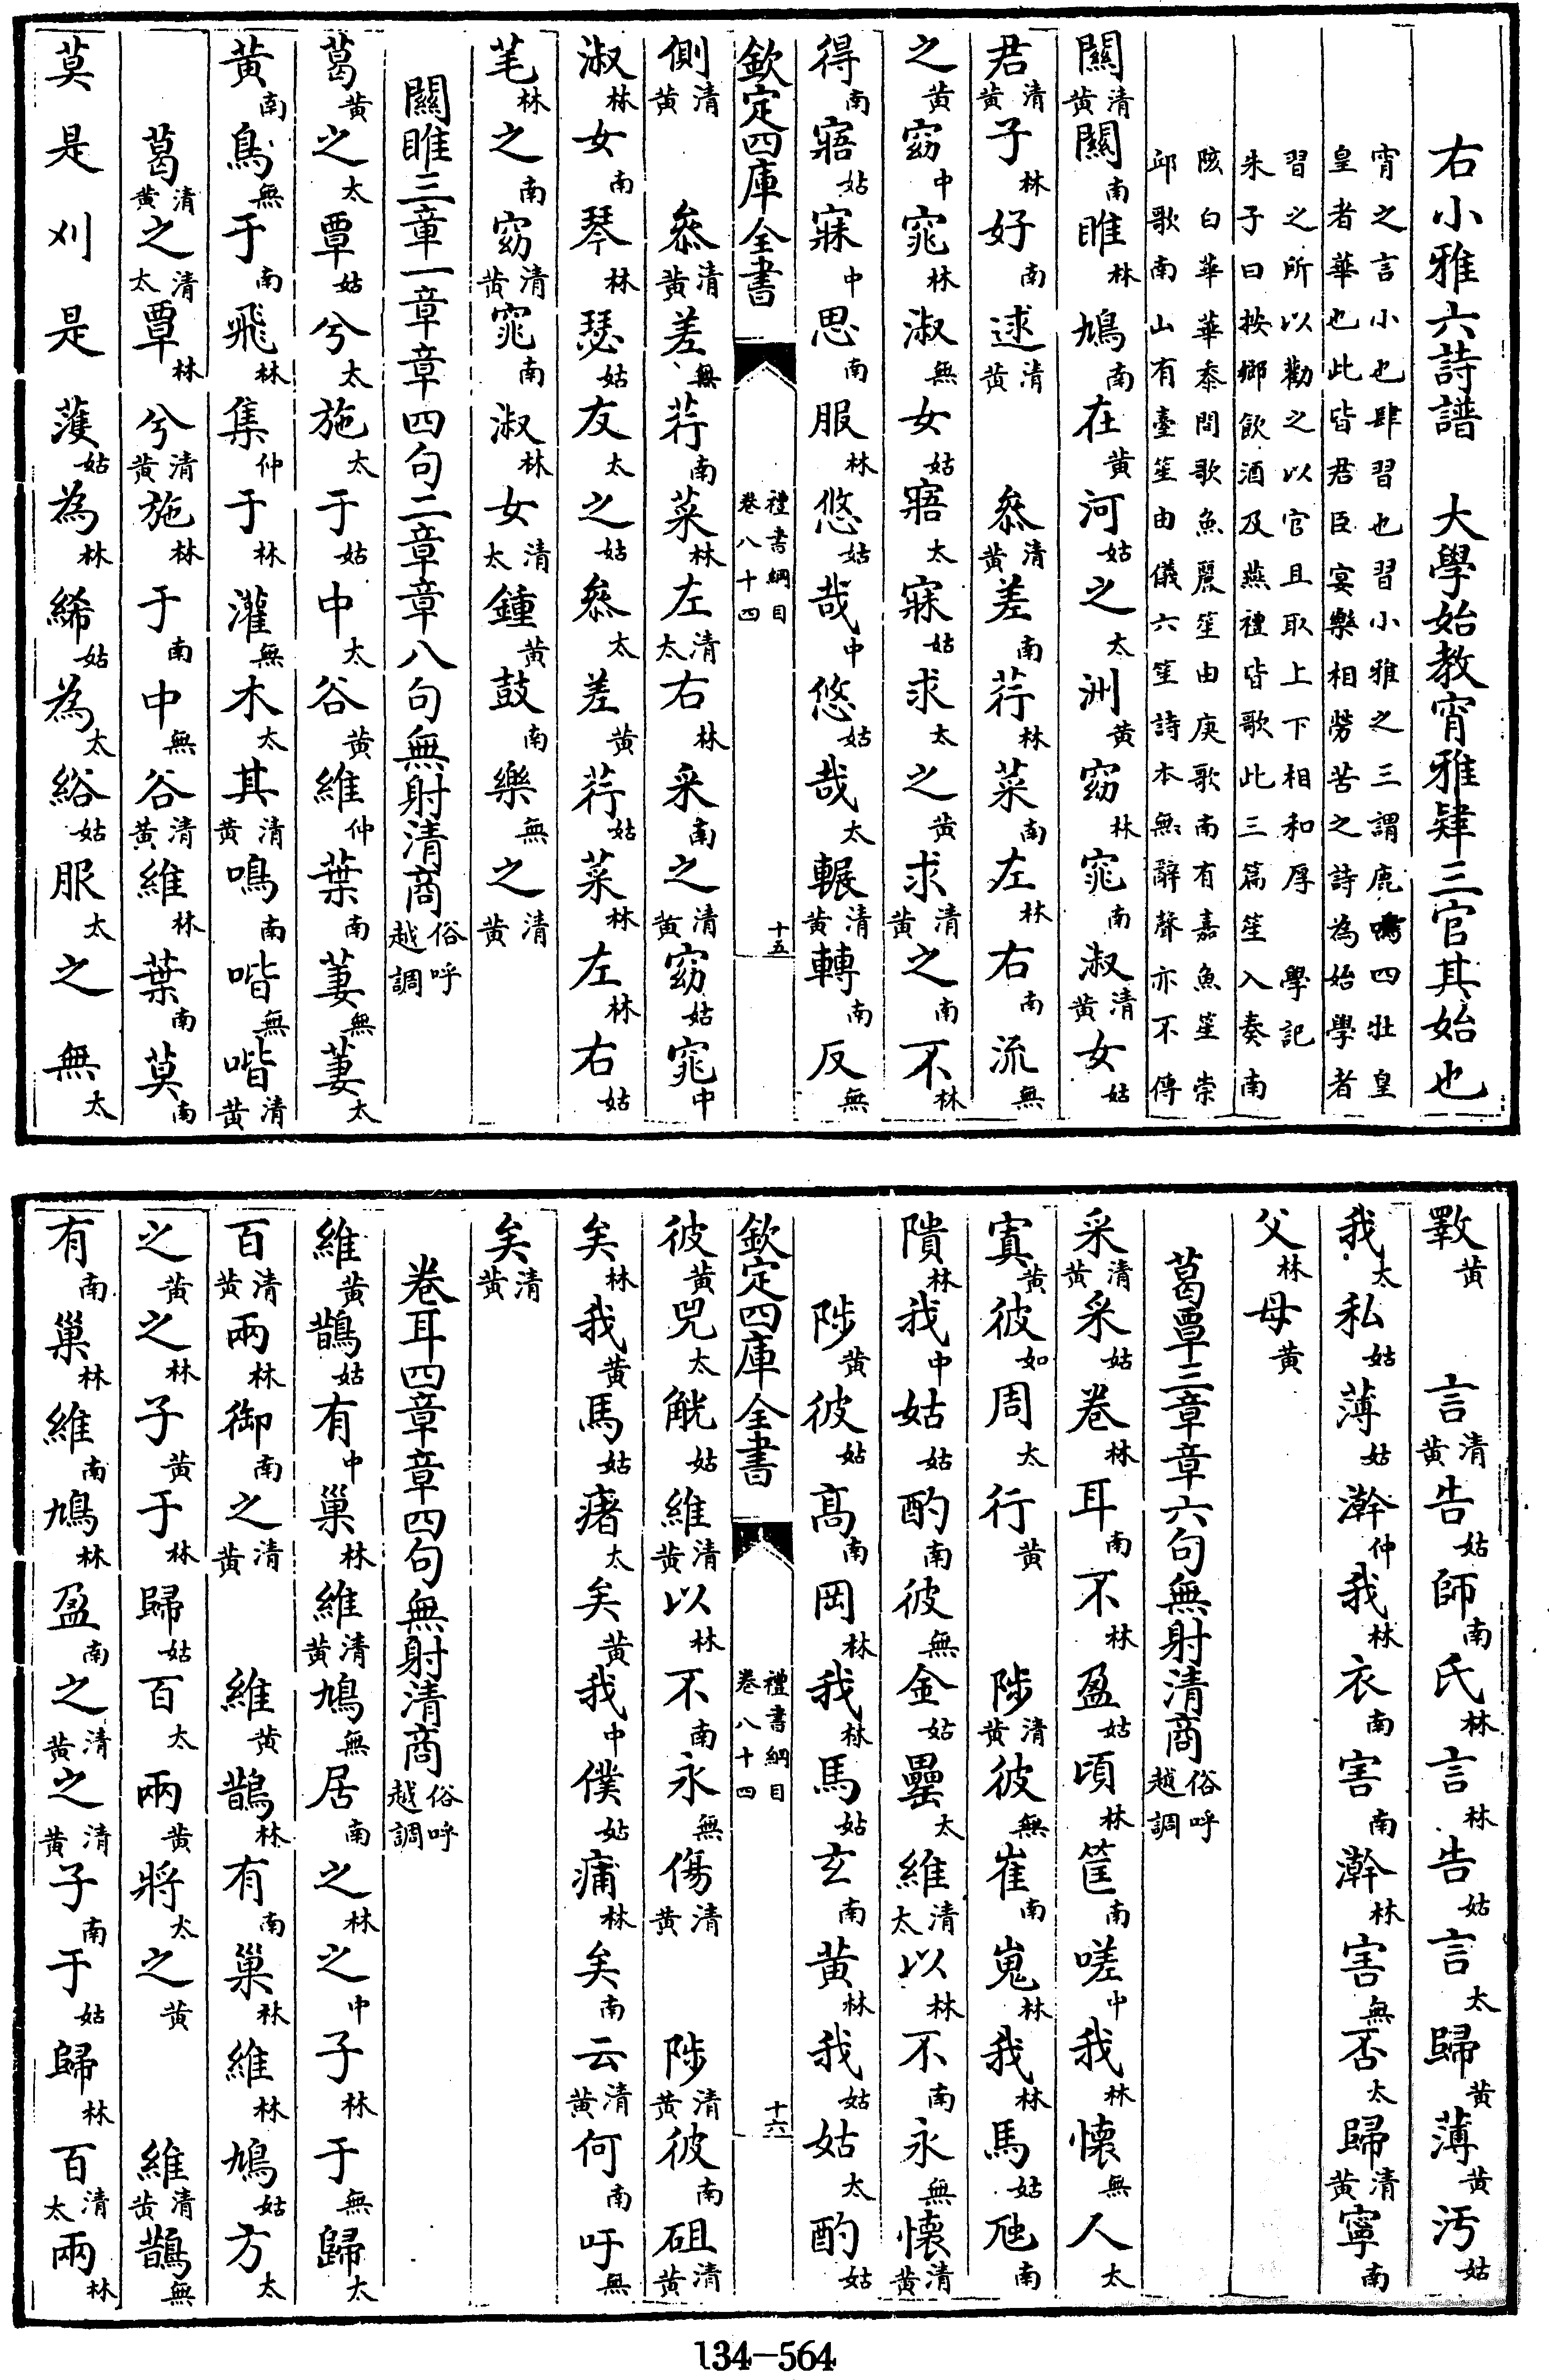 右小雅六詩譜　大學始教宵雅肄三官其始也
宵之言小也肆習也習小雅之三謂鹿鳴四牡皇
皇者華也此皆君臣宴樂相勞苦之詩為始學者
習之所以勸之以官且取上下相和厚　學記
朱子曰按鄉飲酒及燕禮皆歌此三篇笙入奏南
陔白華華黍間歌魚麗笙由庚歌南有嘉魚笙崇
邱歌南山有臺笙由儀六笙詩本無辭聲亦不傳
關清黃關南雎林鳩南在黃河姑之太洲黃窈林窕南淑清黃女姑
君清黃子林好南逑清黃　參清黃差南荇林菜南左林右南流無
之黃窈中窕林淑無女姑寤太寐姑求太之黃求清黃之南不林
得南寤姑寐中思南服林悠姑哉中悠姑哉太輾清黃轉南反無
欽定四庫全書　禮書綱目卷八十四　十五
側清黃　參清黃差無荇南菜林左清太右林采南之清黃窈姑窕中
淑林女南琴林瑟姑友太之姑參太差黃荇姑菜林左林右姑
芼林之南窈清黃窕南淑林女清太鐘黃鼓南樂無之清黃
關雎三章一章章四句二章章八句無射清商俗呼越調
葛黃之太覃姑兮太施太于姑中太谷黃維仲葉南萋無萋太
黃南鳥無于南飛林集仲于林灌無木太其清黃鳴南喈無喈清黃
葛清黃之清太覃林兮清黃施林于南中無谷清黃維林葉南莫南
莫是刈是濩姑為林絺姑為太綌姑服太之無太
斁黃　言清黃告姑師南氏林言林告姑言太歸黃薄黃汚姑
我太私姑薄姑澣仲我林衣南害南澣林害無否太歸清黃寧南
父林母黃
葛覃三章章六句無射清商俗呼越調
采清黃采姑卷林耳南不林盈姑頃林筐南嗟中我林懷無人太
寘黃彼如周太行黃　陟清黃彼無崔南嵬林我林馬姑虺南
隤林我中姑姑酌南彼無金姑罍太維清太以林不南永無懷清黃
陟黃彼姑高南岡林我林馬姑玄南黃林我姑姑太酌姑
欽定四庫全書　禮書綱目卷八十四　十六
彼黃兕太觥姑維清黃以林不南永無傷清黃　陟清黃彼南砠清黃
矣林我黃馬姑瘏太矣黃我中僕姑痡林矣南云清黃何南吁無
矣清黃
卷耳四章章四句無射清商俗呼越調
維黃鵲姑有中巢林維清黃鳩無居南之林之中子林于無歸太
百清黃兩林御南之清黃　維黃鵲林有南巢林維林鳩姑方太
之黃之林子黃于林歸姑百太兩黃將太之黃　維清黃鵲無
有南巢林維南鳩林盈南之清黃之清黃子南于姑歸林百清太兩林
134-564